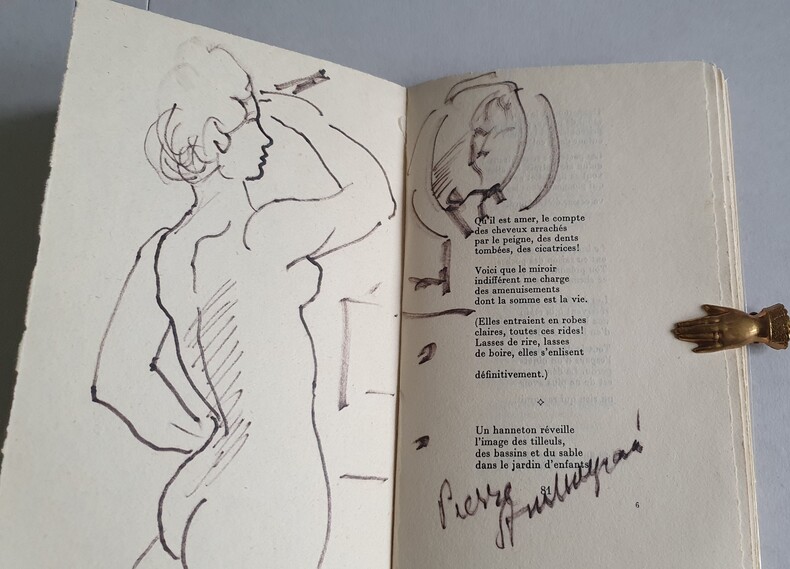 Qu'il est amer, le compte
des cheveux arrachés
par le peigne, des dents
tombées, des cicatrices!
Voici que le miroir
indifférent me charge
des amenuisements
dont la somme est la vie.
(Elles entraient en robes
claires, toutes ces rides!
Lasses de rire, lasses
de boire, elles s'enlisent
définitivement.)
Un hanneton réveille
l'image des tilleuls,
des bassins et du sable
dans le jardin d'enfants
Pierre
81
6